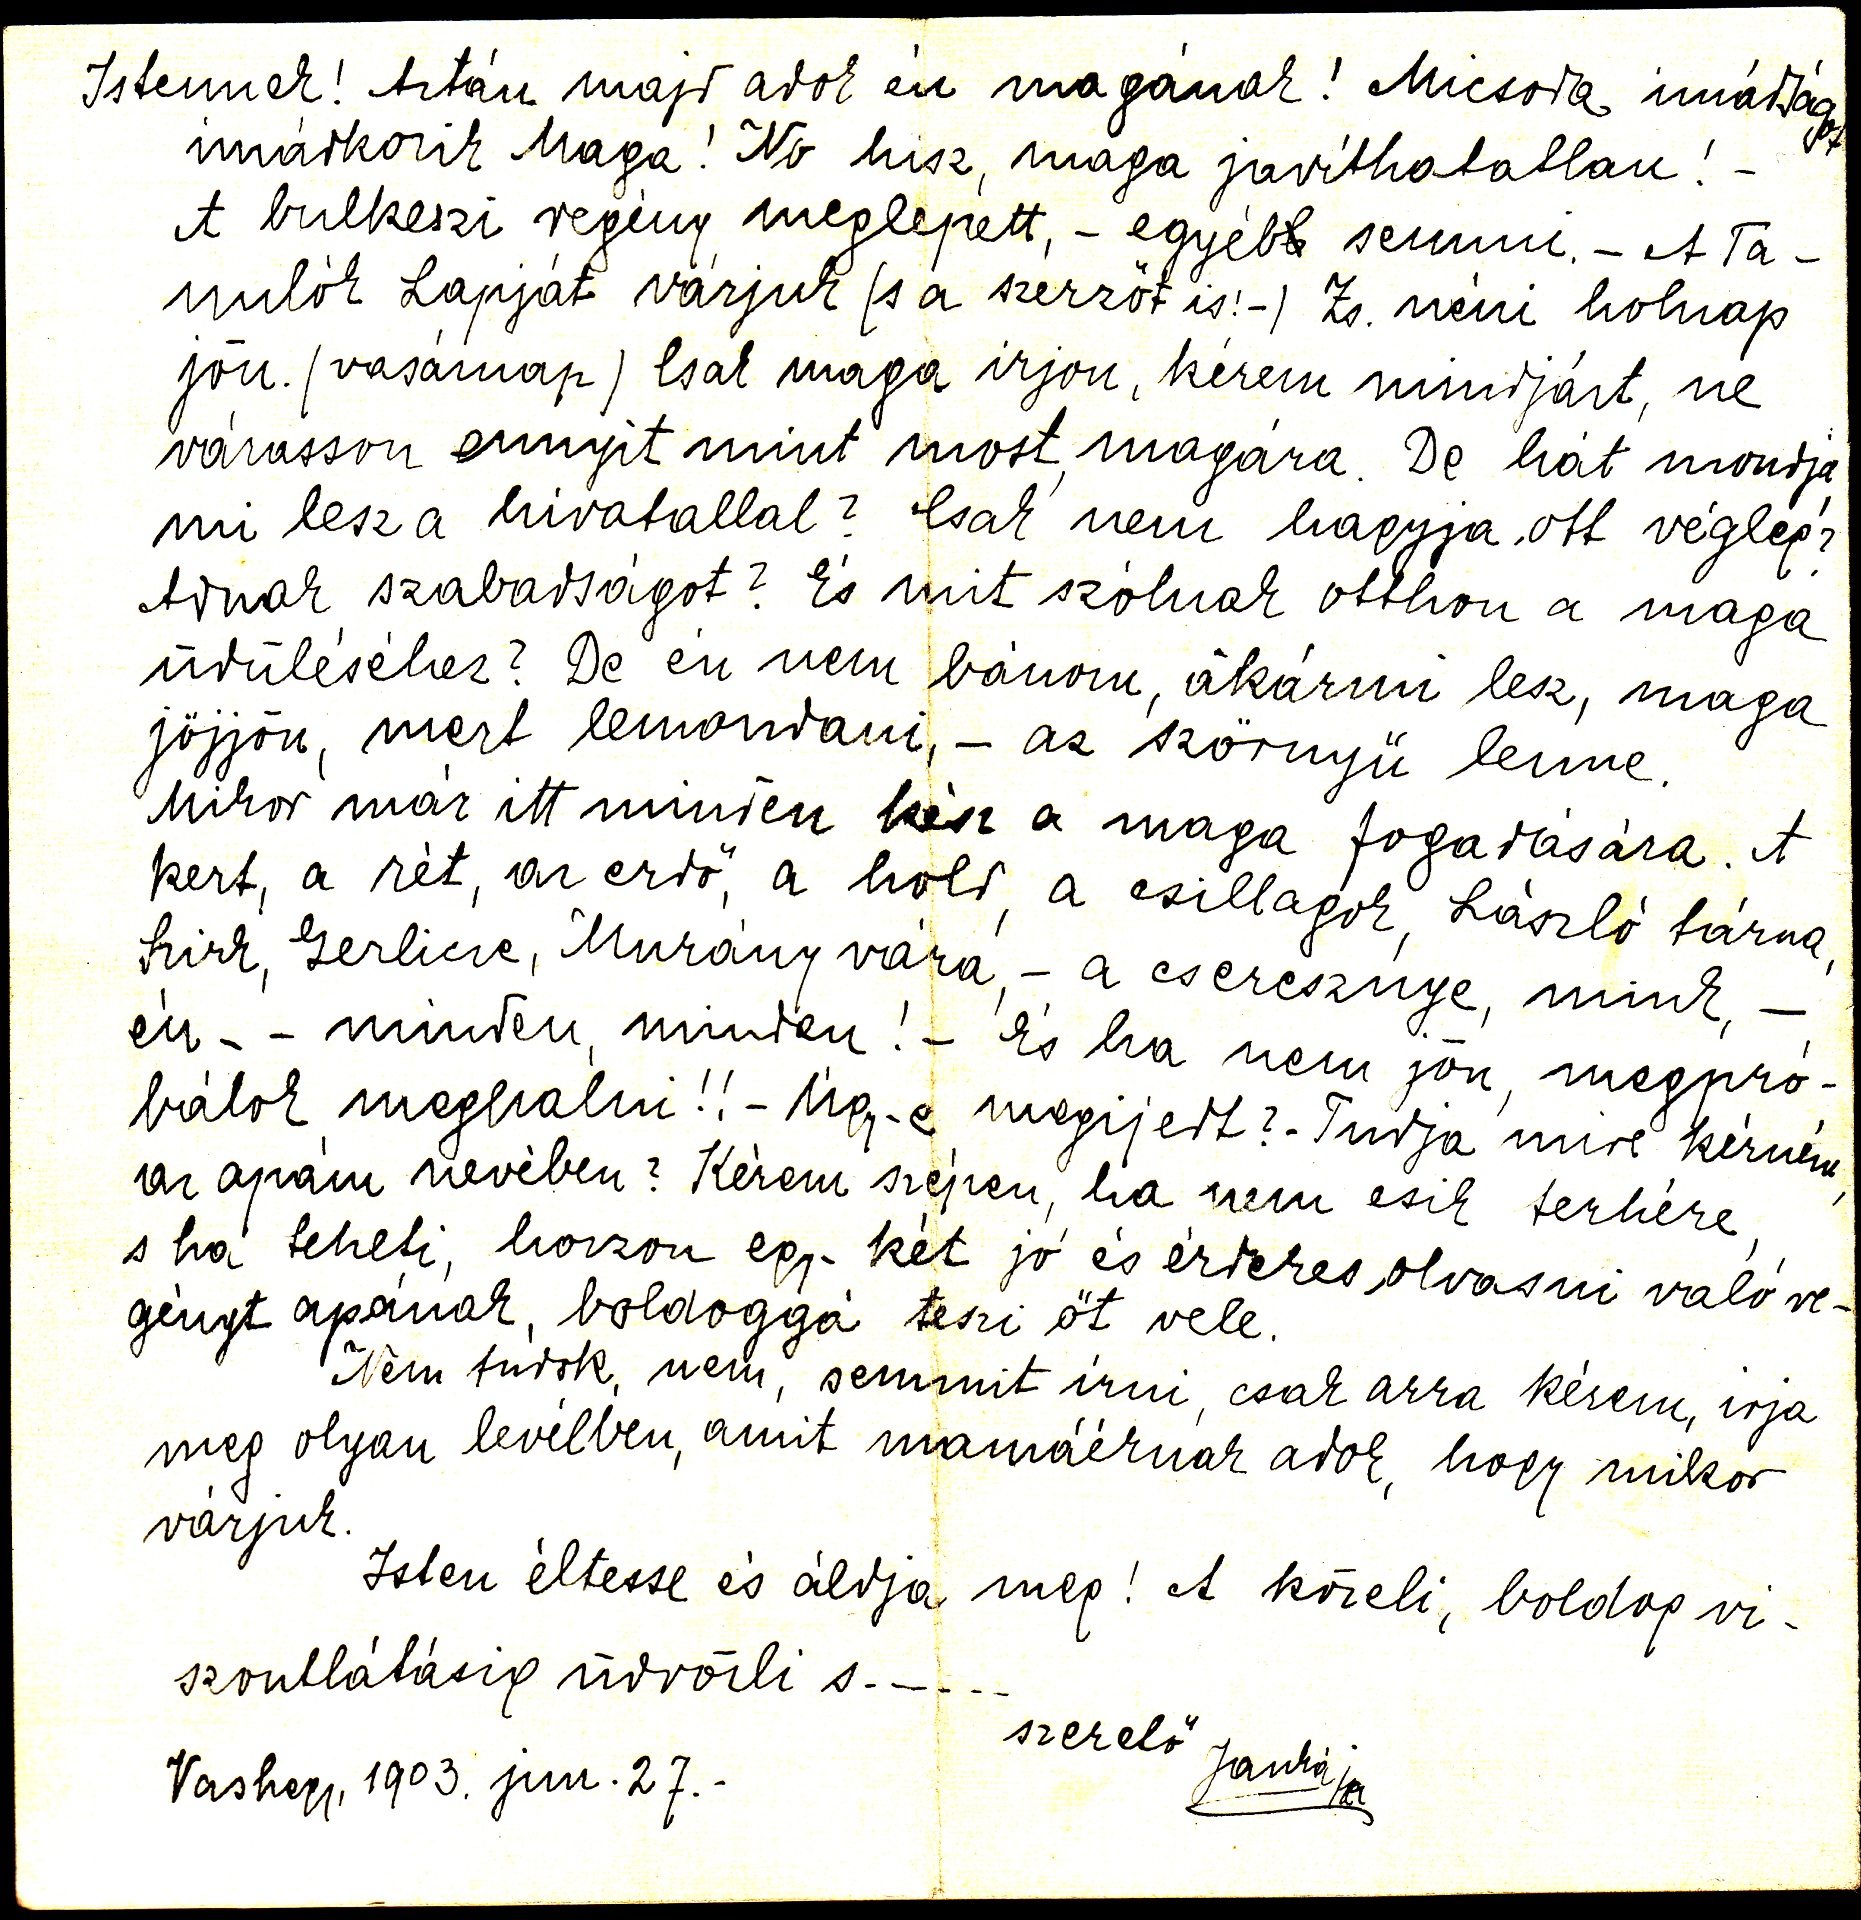 Istennek! Aztán majd adok én magának! Micsoda imádságot
imádkozik Maga! No hisz, maga javíthatatlan! -
A bulkeszi regény meglepett, - egyébb semmi. - A Ta-
nulók Lapját várjuk (s a szerzőt is! -) Zs. néni holnap
jön. (vasárnap) Csak maga irjon, kérem mindjárt, ne
várasson ennyit mint most, magára. De hát mondja,
mi lesz a hivatallal? Csak nem hagyja ott végleg?
Adnak szabadságot? És mit szólnak otthon a maga
üdüléséhez? De én nem bánom, akármi lesz, maga
jöjjön, mert lemondani, - az szörnyü lenne.
Mikor már itt minden kész a maga fogadására. A
kert, a rét, az erdő, a hold, a csillagok, László tárna,
Szirk, Gerlicze, Murány vára, - a cseresznye, mink, -
én - - minden, minden! - És ha nem jön, megpró-
bálok meghalni!! - Ugy-e megijedt? - Tudja mire kérném,
az apám nevében? Kérem szépen, ha nem esik terhére,
s ha teheti, hozzon egy-két jó és érdekes olvasni való re-
gényt apának, boldoggá teszi őt vele.
Nem tudok, nem, semmit írni, csak arra kérem, irja
meg olyan levélben, amit mamáéknak adok, hogy mikor
várjuk.
Isten éltesse és áldja meg! A közeli, boldog vi-
szontlátásig üdvözli s - - - - -
szerető Jankája
Vashegy, 1903. jun. 27. -